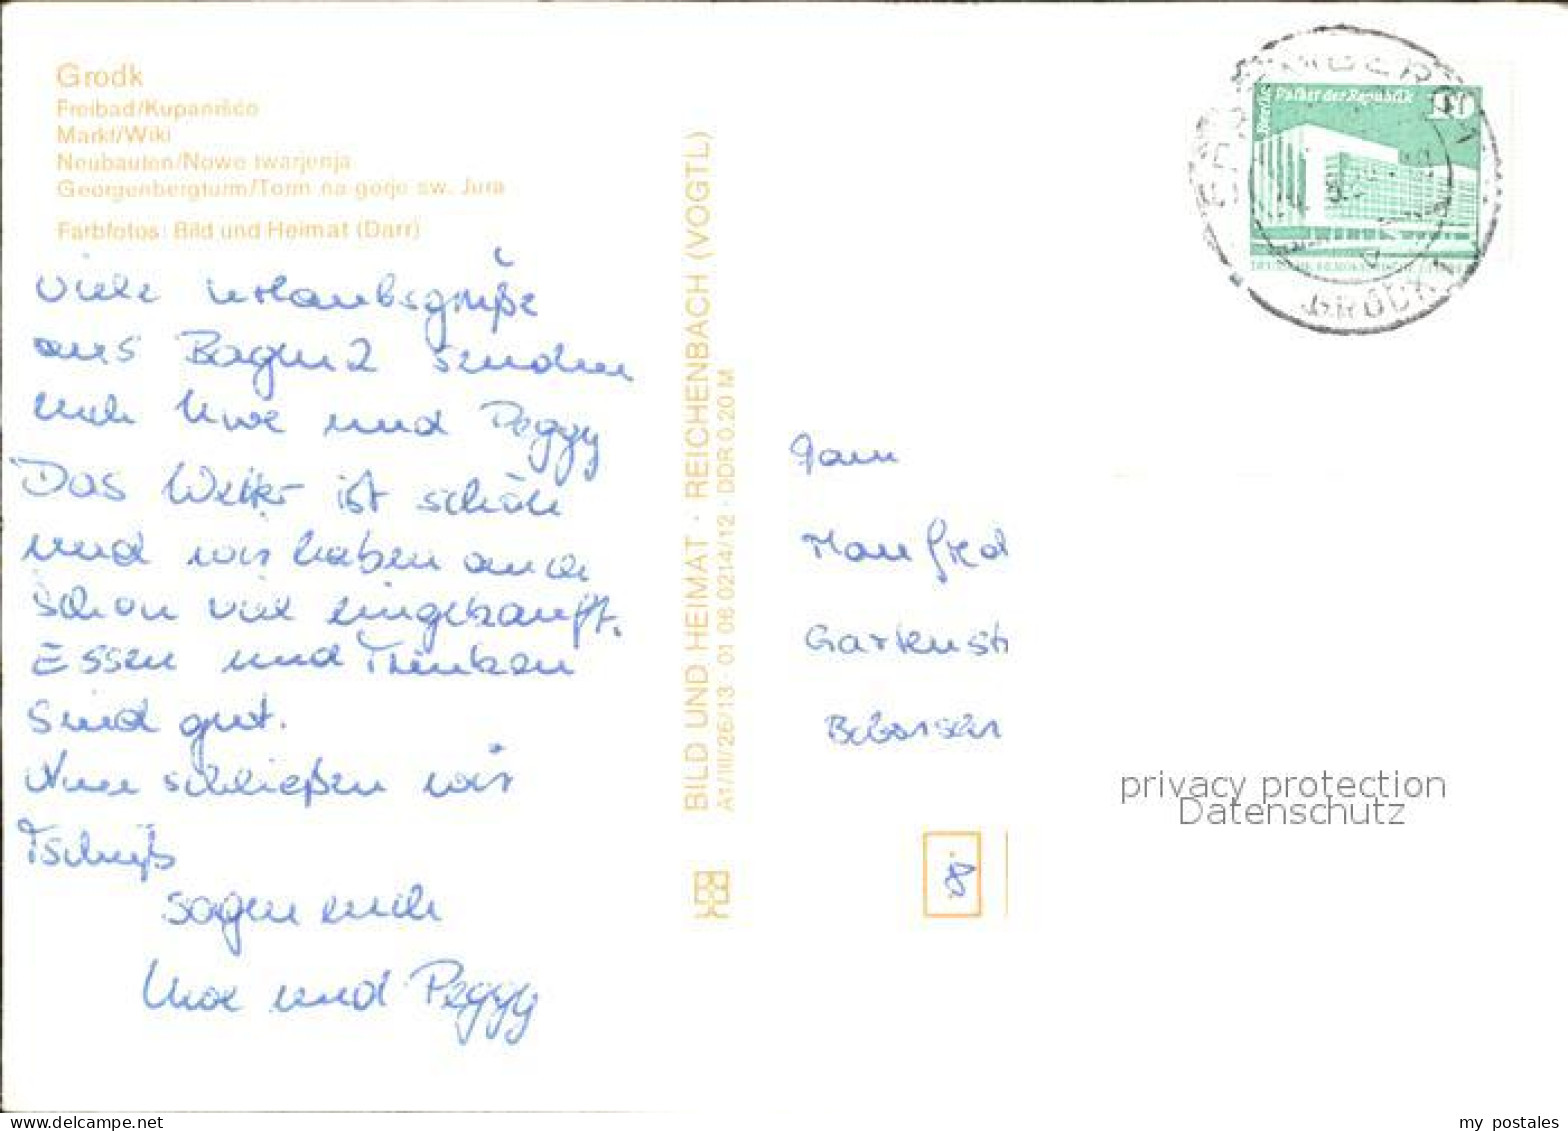 Grodk
Freibad/Kupanišćo
Markt/Wiki
Neubauten/Nowe twarjenja
Georgenbergturm/Torm na gorje sw. Jura
Farbfotos: Bild und Heimat (Darr)
viele Urlaubsgrüße
aus senden
euch Uwe und Peggy
Das Wetter ist schön
und wir haben auch
schon viel eingekauft.
Essen und Trinken
sind gut.
Nun schließen wir
Tschüß
sagen euch
Uwe und Peggy
BILD UND HEIMAT · REICHENBACH (VOGTL)
A1/III/26/13 · 01 06 0214/12 · DDR 0,20 M
Berlin Palast der Republik 10
GRODK 1
Fam
Manfred
Gartenst
privacy protection
Datenschutz
8
www.delcampe.net
my_postales